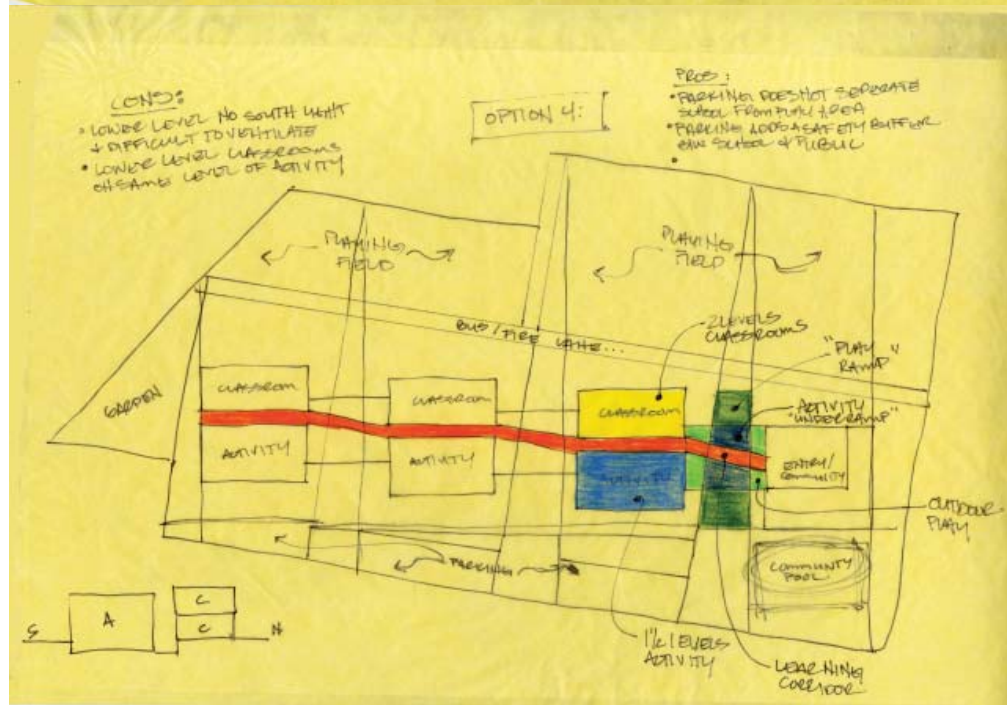 CONS:
• LOWER LEVEL NO SOUTH LIGHT
& DIFFICULT TO VENTILATE
• LOWER LEVEL CLASSROOMS
ON SAME LEVEL OF ACTIVITY
OPTION 4:
PROS:
• PARKING DOES NOT SEPERATE
SCHOOL FROM PLAY AREA
• PARKING ADDS A SAFETY BUFFER
B/W SCHOOL & PUBLIC
PLAYING
FIELD
PLAYING
FIELD
BUS / FIRE LANE...
2 LEVELS
CLASSROOMS
"PLAY
RAMP"
ACTIVITY
"UNDER RAMP"
GARDEN
CLASSROOM
CLASSROOM
CLASSROOM
ACTIVITY
ACTIVITY
ACTIVITY
ENTRY/
COMMUNITY
OUTDOOR
PLAY
PARKING
COMMUNITY
POOL
1 1/2 LEVELS
ACTIVITY
LEARNING
CORRIDOR
S
A
C
C
N